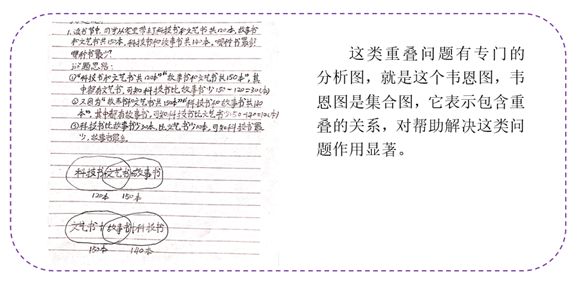 1.读书节中,
科技书和文艺书共120本,故事书
和文艺书共150本,科技书和故事书共140本。哪种书最多
哪种书最少?
思路:
①“科技书和文艺书共120本”“故事书和文艺书共150本”,其
中都有文艺书,可知科技书比故事书少150-120=30(本)
②又因为“故事书和文艺书共150本”“科技书和故事书共140
本”,其中都有故事书,可知科技书比文艺书少150-140=10(本)
③科技书比故事书少30本,比文艺书少10本,可知科技书最
少,故事书最多。
科技书 文艺书 故事书
120本 150本
文艺书 故事书 科技书
150本 140本
这类重叠问题有专门的
分析图,就是这个韦恩图,韦
恩图是集合图,它表示包含重
叠的关系,对帮助解决这类问
题作用显著。